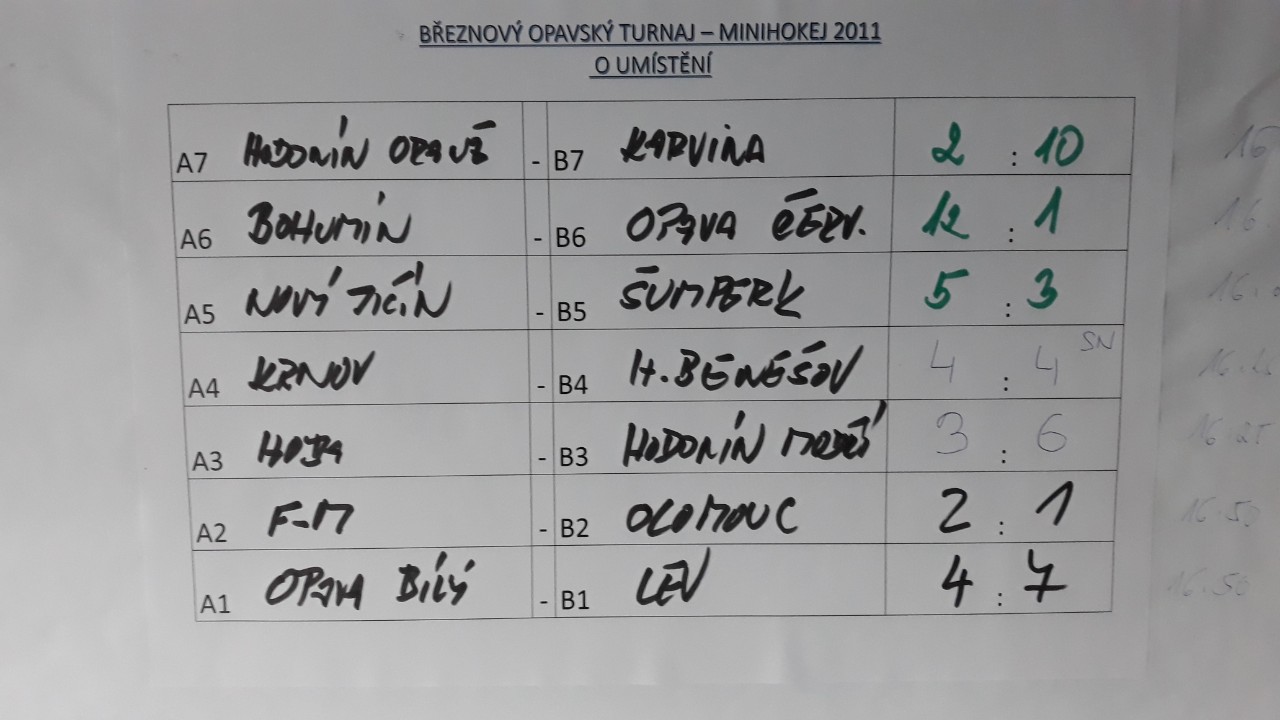 BŘEZNOVÝ OPAVSKÝ TURNAJ – MINIHOKEJ 2011
O UMÍSTĚNÍ
A7 HODONÍN - B7 KARVINA 2 : 10
A6 BOHUMÍN - B6 OPAVA ČERV. 12 : 1
A5 NOVÝ JIČÍN - B5 ŠUMPERK 5 : 3
A4 KRNOV - B4 H. BENEŠOV 4 : 4 SN
A3 - B3 HODONÍN 3 : 6
A2 F-M - B2 OLOMOUC 2 : 1
A1 OPAVA BÍLÝ - B1 LEV 4 : 7
16.50